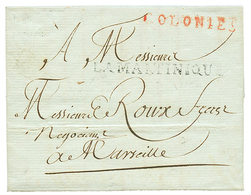 COLONIES
A Messieurs
LA MARTINIQUE
Messieurs Roux freres
Negociant
a Marseille